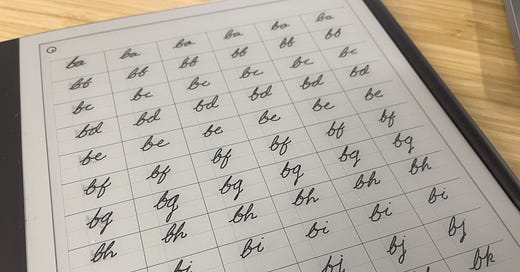 ba ba ba ba ba ba
bb bb bb bb bb bb
bc bc bc bc bc bc
bd bd bd bd bd bd
be be be be be be
bf bf bf bf bf bf
bg bg bg bg bg bg
bh bh bh bh bh bh
bi bi bi bi bi
bj bj bj
bk